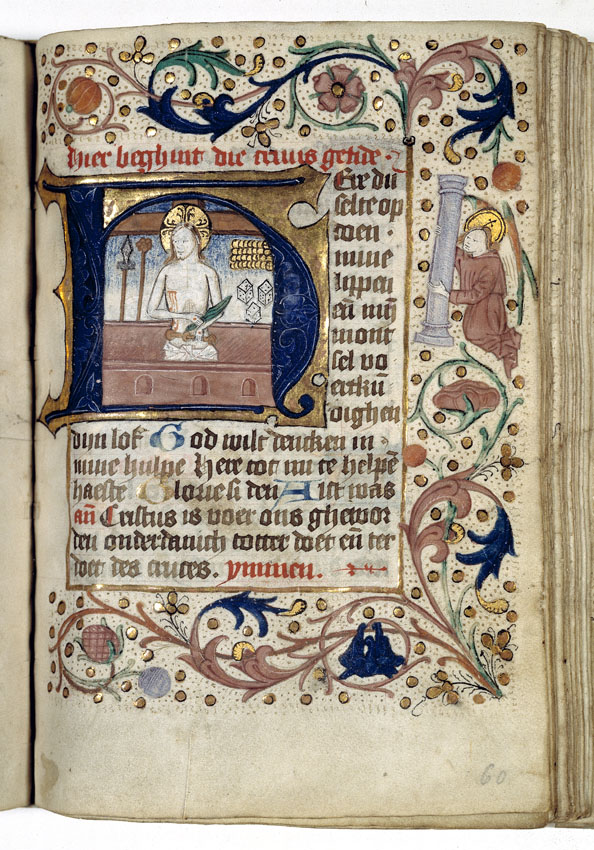 Hier beghint die cruus getide.
HEre du
selte op
doen.
mine
lippen
eñ mij
mont
sel vo
ertkũ
dighen
dijn lof God wilt dencken in
mine hulpe Here tot mi te helpẽ
haeste Glorie si den Alst was
añ Cristus is voer ons ghewor
den onderdanich totter doet eñ ter
doet des cruces. ymmen.
60